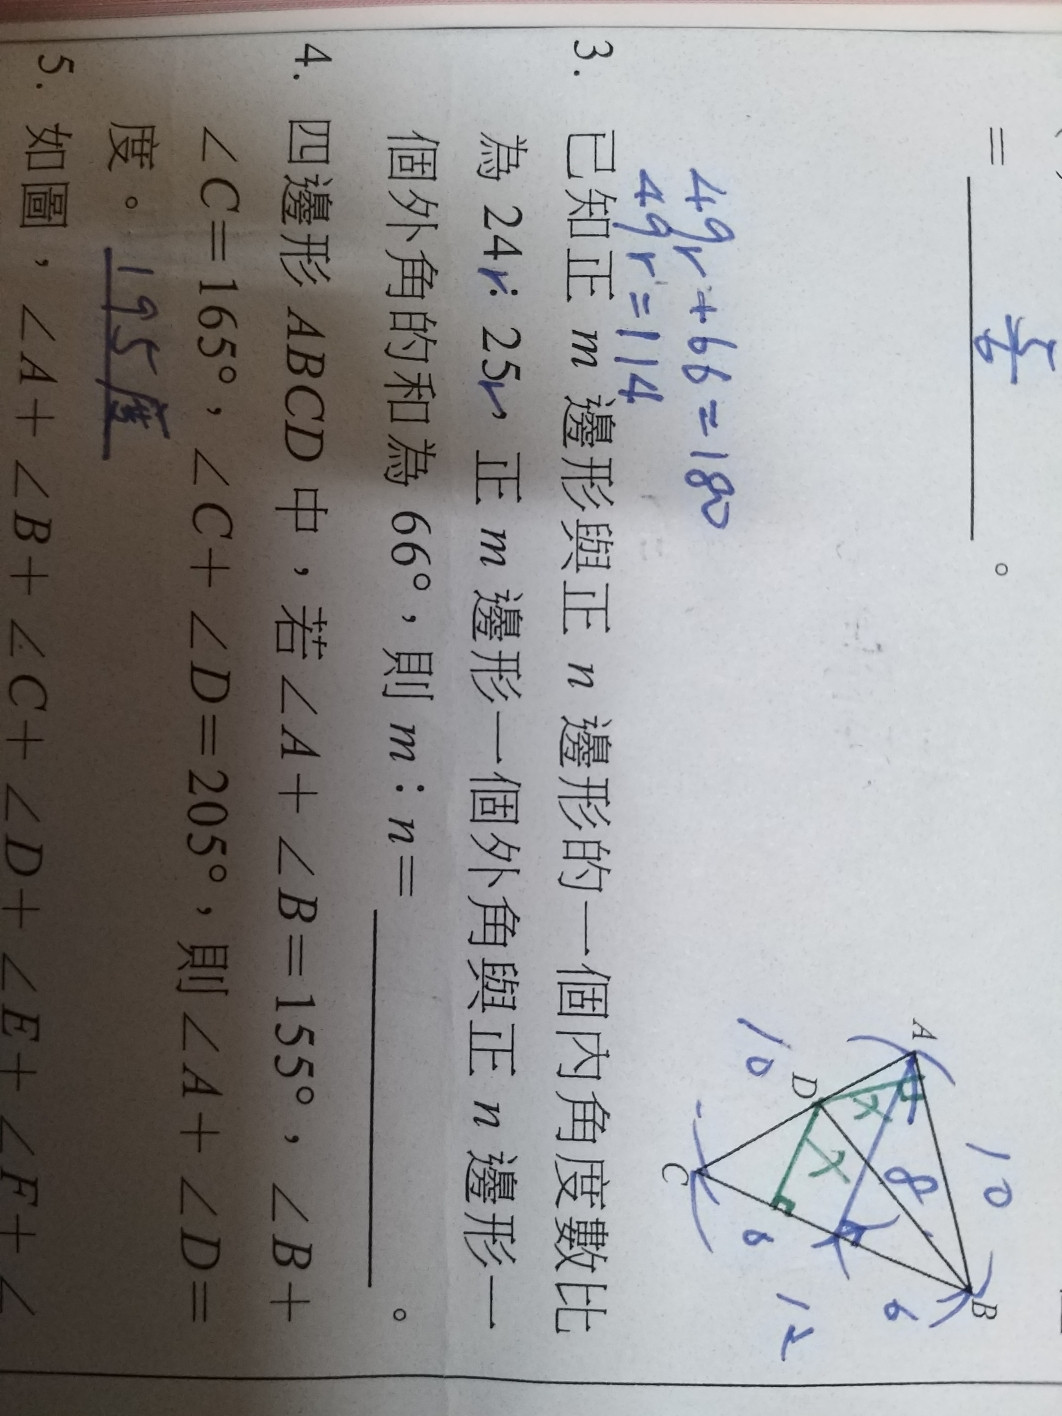 = 5/6 。
A
10
B
10
8
x
x
D
6
6
12
C
49r+66=180
49r=114
3. 已知正 m 邊形與正 n 邊形的一個內角度數比
為 24r：25r，正 m 邊形一個外角與正 n 邊形一
個外角的和為 66°，則 m：n= 。
4. 四邊形 ABCD 中，若∠A+∠B=155°，∠B+
∠C=165°，∠C+∠D=205°，則∠A+∠D=
度。195度
5. 如圖，∠A+∠B+∠C+∠D+∠E+∠F+∠